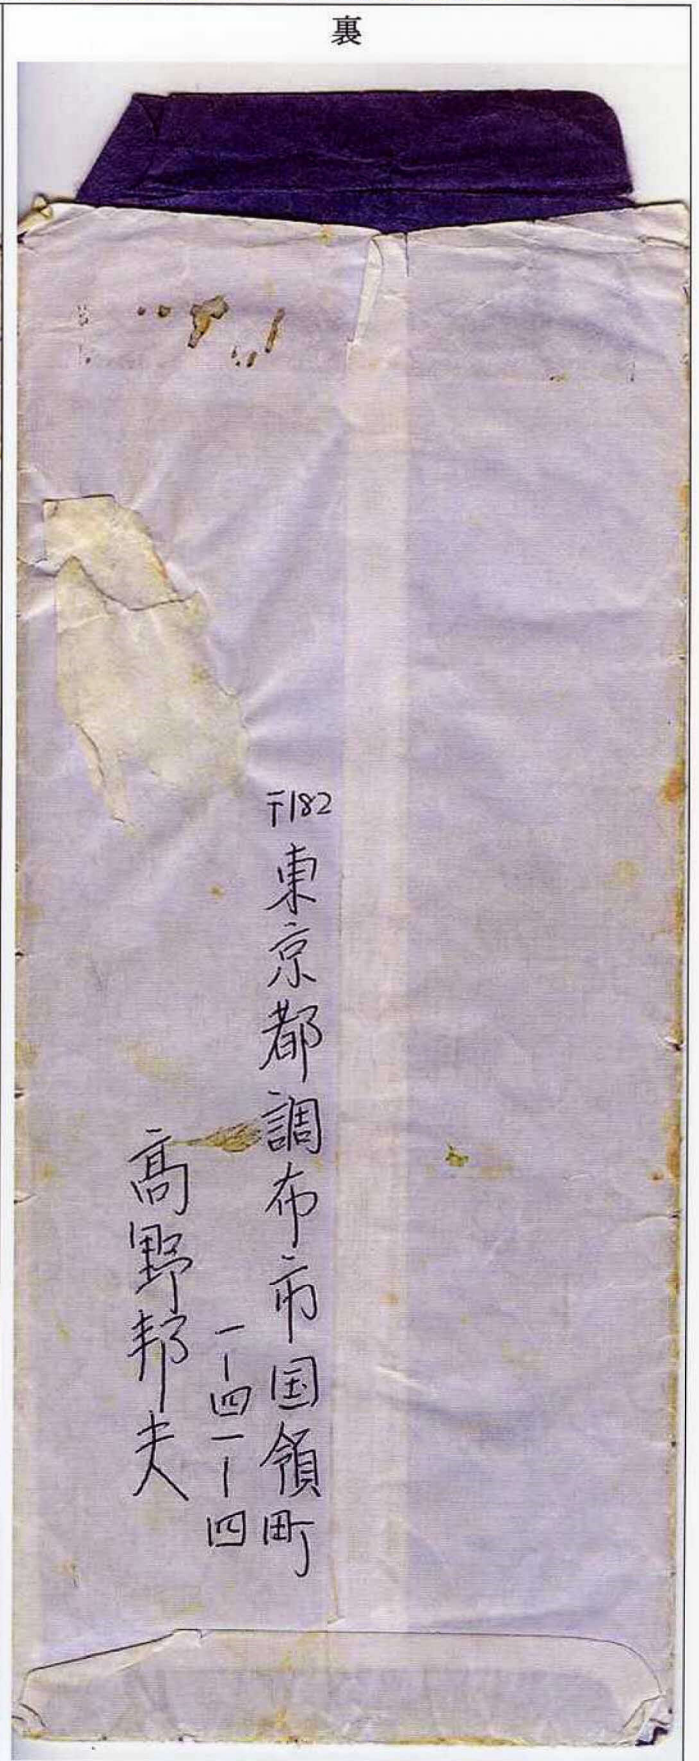 裏
〒182
東京都調布市国領町
一ー四一ー四
高野邦夫